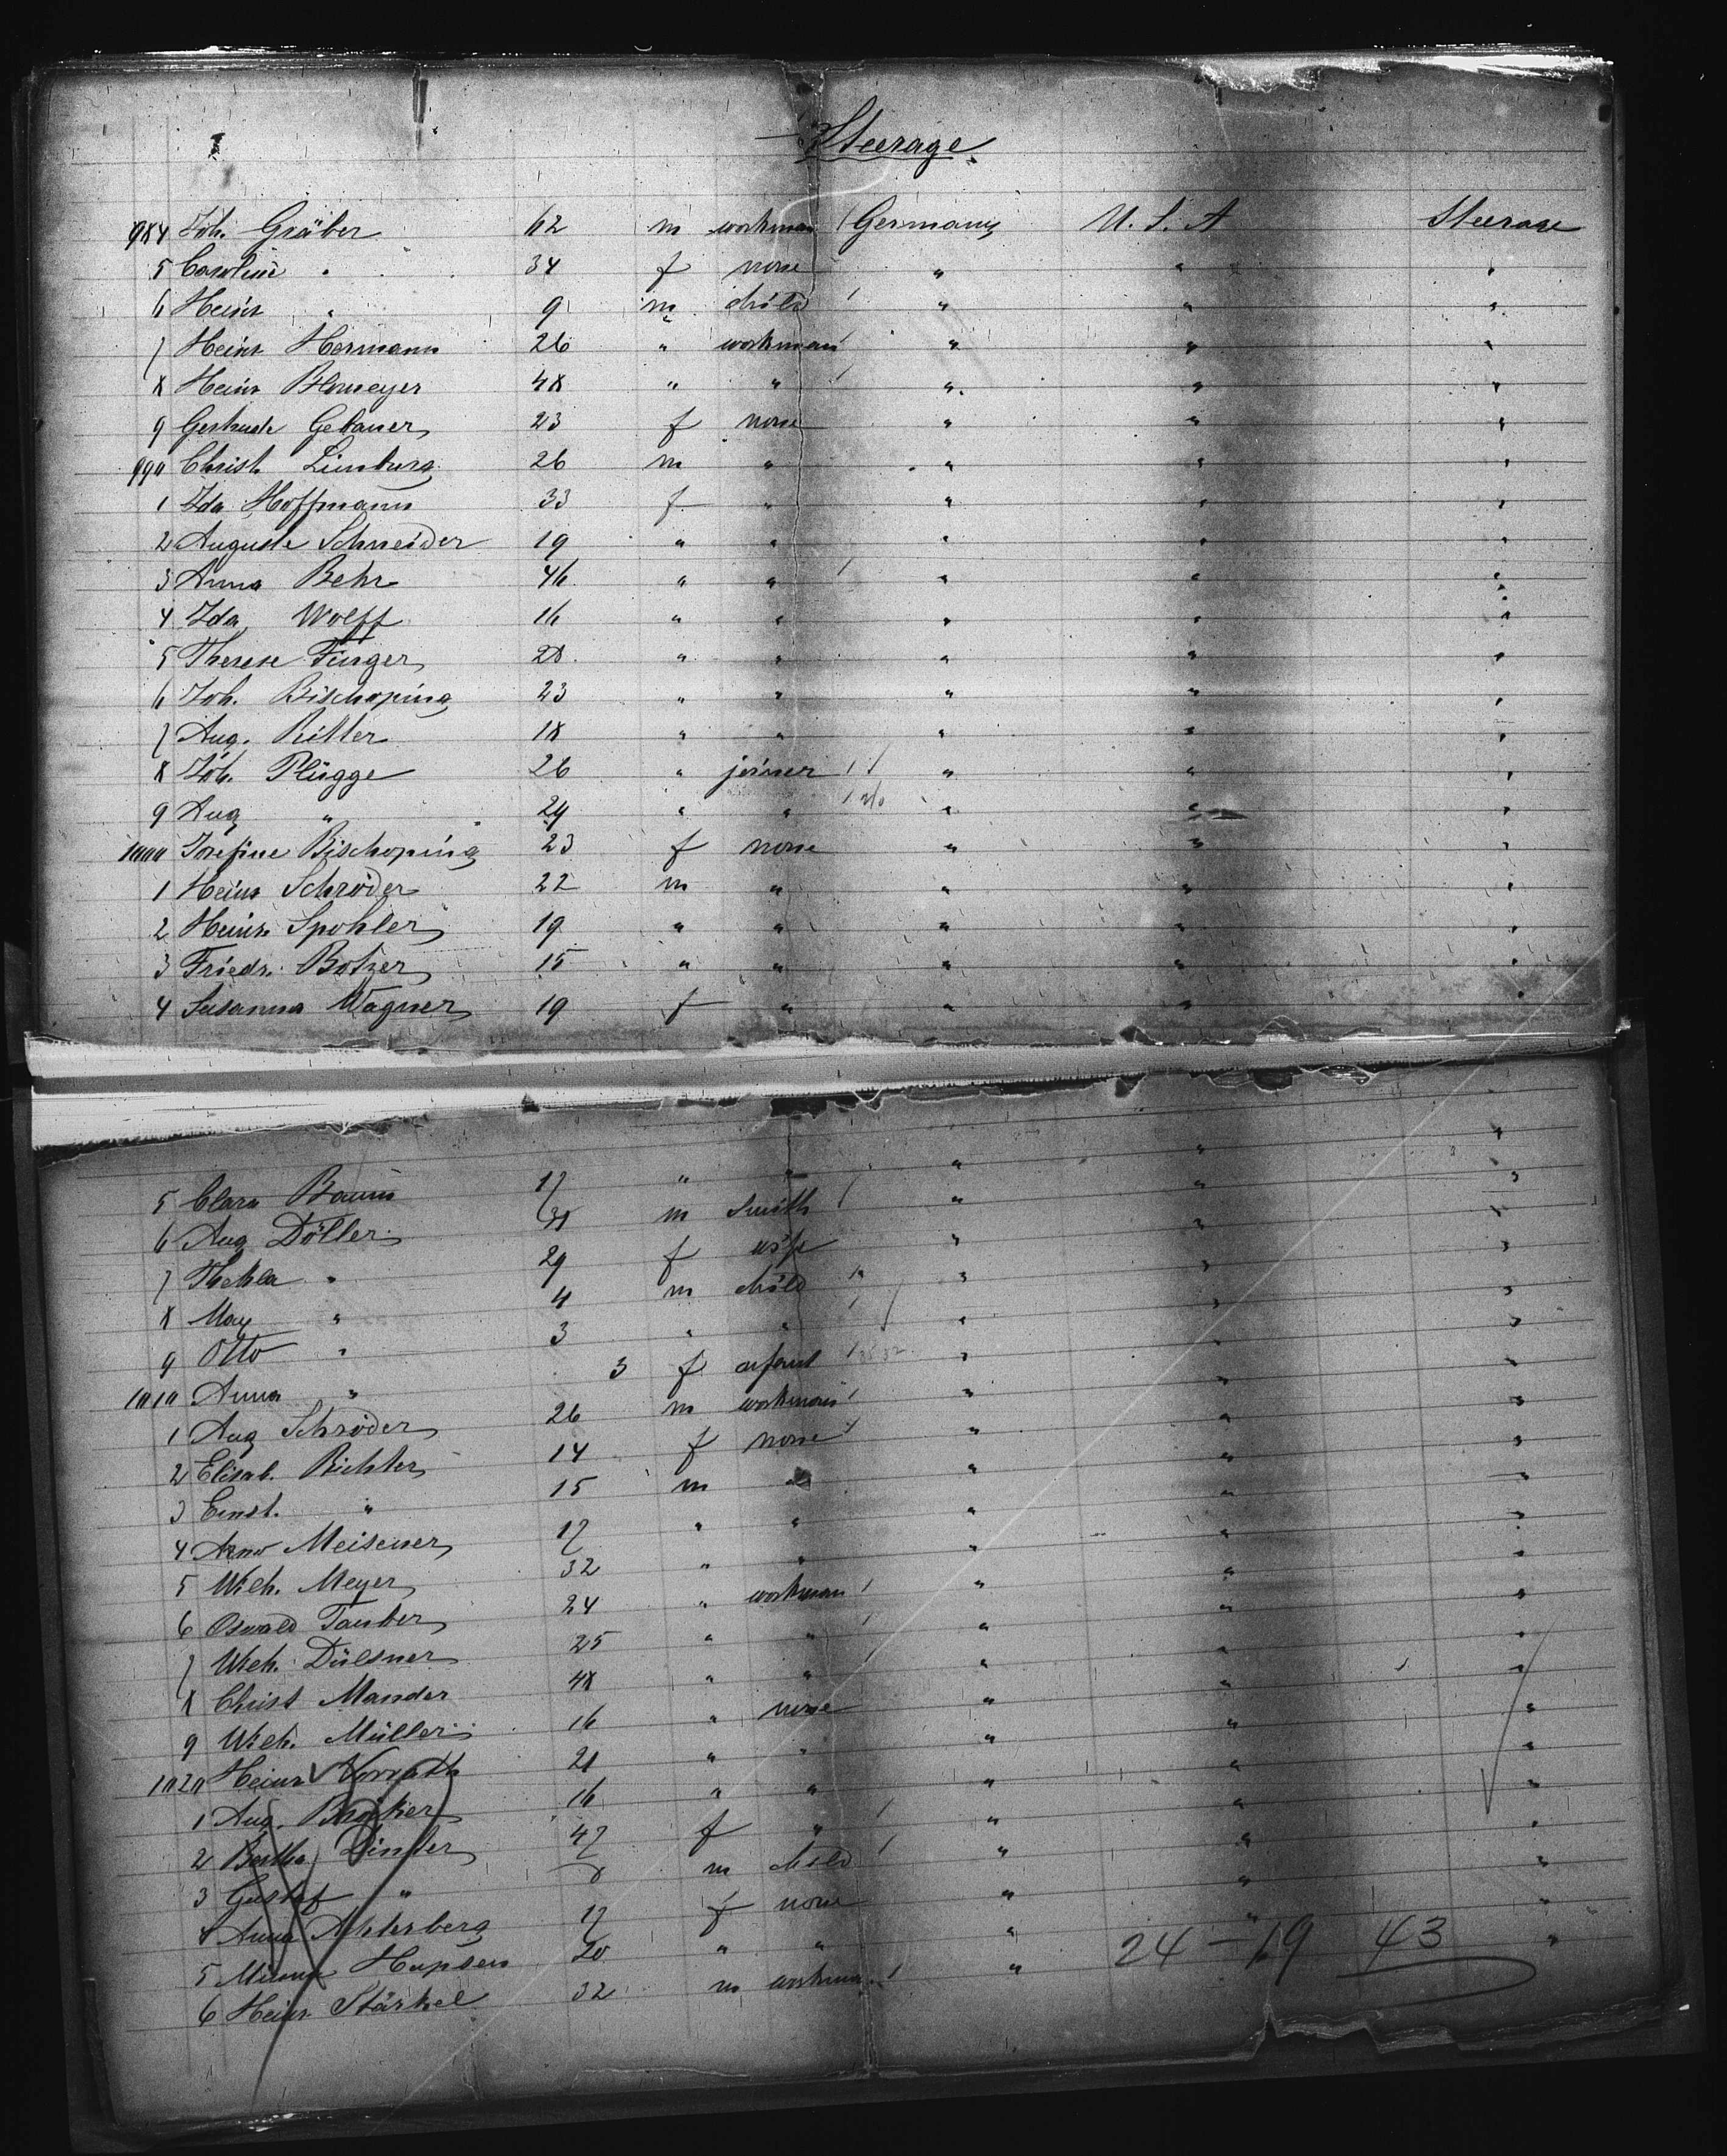 Steerage
984 Joh. Gräber 62 m workman Germany U. S. A Steerage
5 Caroline " 34 f none " " "
6 Heinr " 9 m child " " "
7 Heinr Hermann 26 " workman " " "
8 Heinr Blomeyer 48 " " " " "
9 Gertrude Gebauer 23 f none " " "
990 Christ Limburg 26 m " " " "
1 Ida Hoffmann 33 f " " " "
2 Auguste Schneider 19 " " " " "
3 Anna Behr 46 " " " " "
4 Ida Wolff 16 " " " " "
5 Therese Finger 28 " " " " "
6 Joh. Bischoping 23 " " " " "
7 Aug. Ritter 18 " " " " "
8 Joh. Plügge 26 " joiner " " "
9 Aug " 24 " " " " "
1000 Josefine Bischoping 23 f none " " "
1 Heinr Schröder 22 m " " " "
2 Heinr Spohler 19 " " " " "
3 Friedr. Botzer 15 " " " " "
4 Susanna Wagner 19 f " " " "
5 Clara Baum 17 " " " " "
6 Aug Döller 31 m Smith " " "
7 Thekla " 29 f wife " " "
8 Max " 4 m child " " "
9 Otto " 3 " " " " "
1010 Anna " 3 f infant " " "
1 Aug Schröder 26 m workman " " "
2 Elisab. Richter 14 f none " " "
3 Ernst. " 15 m " " " "
4 Arno Meisener 17 " " " " "
5 Wilh. Meyer 32 " " " " "
6 Oswald Tauber 24 " workman " " "
7 Wilh. Dülsner 25 " " " " "
8 Christ Mander 48 " " " " "
9 Wilh. Müller 16 " none " " "
1020 Heinr Vorrath 21 " " " " "
1 Aug. Bröcker 16 " " " " "
2 Bertha Linder 47 f " " " "
3 Gustaf " 8 m child " " "
4 Anna Achterberg 17 f none " " "
5 Minna Hupsen 20 " " " " "
6 Heinr Stärkel 32 m workman "
24 – 19 43